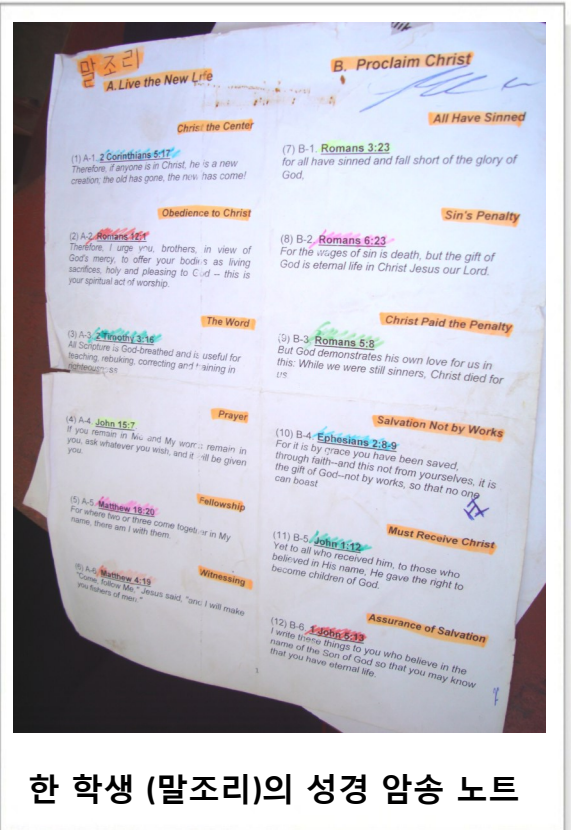 말조리
A.Live the New Life
Christ the Center
(1) A-1. 2 Corinthians 5:17
Therefore, if anyone is in Christ, he is a new
creation; the old has gone, the new has come!
Obedience to Christ
(2) A-2. Romans 12:1
Therefore, I urge you, brothers, in view of
God's mercy, to offer your bodies as living
sacrifices, holy and pleasing to God -- this is
your spiritual act of worship.
The Word
(3) A-3. 2 Timothy 3:16
All Scripture is God-breathed and is useful for
teaching, rebuking, correcting and training in
righteousness
Prayer
(4) A-4. John 15:7
If you remain in Me and My words remain in
you, ask whatever you wish, and it will be given
you.
Fellowship
(5) A-5. Matthew 18:20
For where two or three come together in My
name, there am I with them.
Witnessing
(6) A-6. Matthew 4:19
"Come, follow Me," Jesus said, "and I will make
you fishers of men."
B. Proclaim Christ
All Have Sinned
(7) B-1. Romans 3:23
for all have sinned and fall short of the glory of
God,
Sin's Penalty
(8) B-2. Romans 6:23
For the wages of sin is death, but the gift of
God is eternal life in Christ Jesus our Lord.
Christ Paid the Penalty
(9) B-3. Romans 5:8
But God demonstrates his own love for us in
this: While we were still sinners, Christ died for
us
Salvation Not by Works
(10) B-4. Ephesians 2:8-9
For it is by grace you have been saved,
through faith--and this not from yourselves, it is
the gift of God--not by works, so that no one
can boast
Must Receive Christ
(11) B-5. John 1:12
Yet to all who received him, to those who
believed in His name, He gave the right to
become children of God.
Assurance of Salvation
(12) B-6. 1 John 5:13
I write these things to you who believe in the
name of the Son of God so that you may know
that you have eternal life.
1
한 학생 (말조리)의 성경 암송 노트